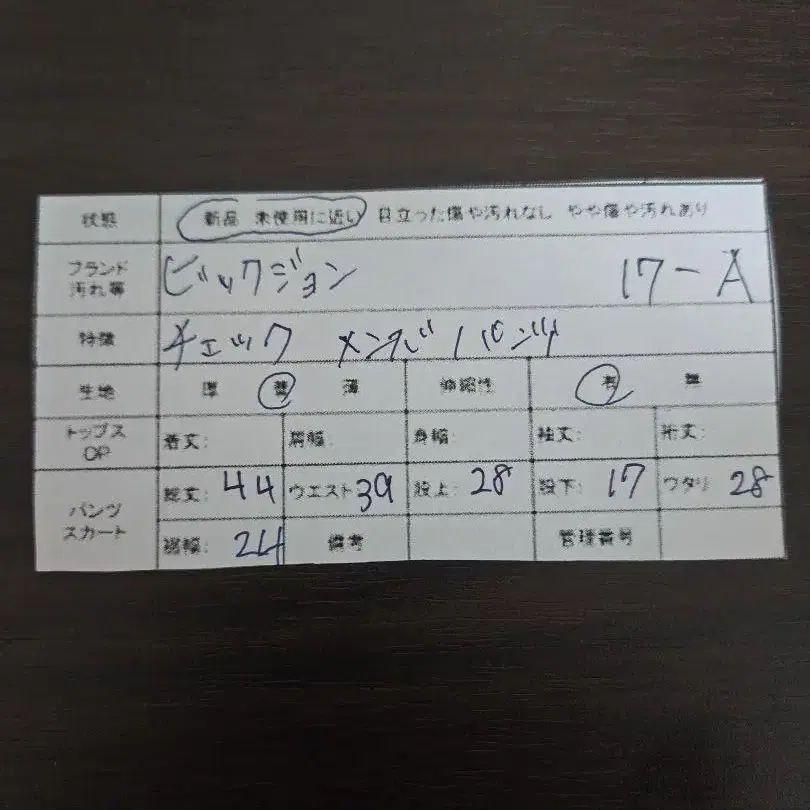 状態 新品 未使用に近い 目立った傷や汚れなし やや傷や汚れあり
ブランド 汚れ等 ビックジョン 17-A
特徴 チェック メンズ パンツ
生地 厚 普 薄 伸縮性 有 無
トップス OP 着丈: 肩幅: 身幅: 袖丈: 裄丈:
パンツ スカート 総丈: 44 ウエスト 39 股上: 28 股下: 17 ワタリ 28
裾幅: 24 備考 管理番号